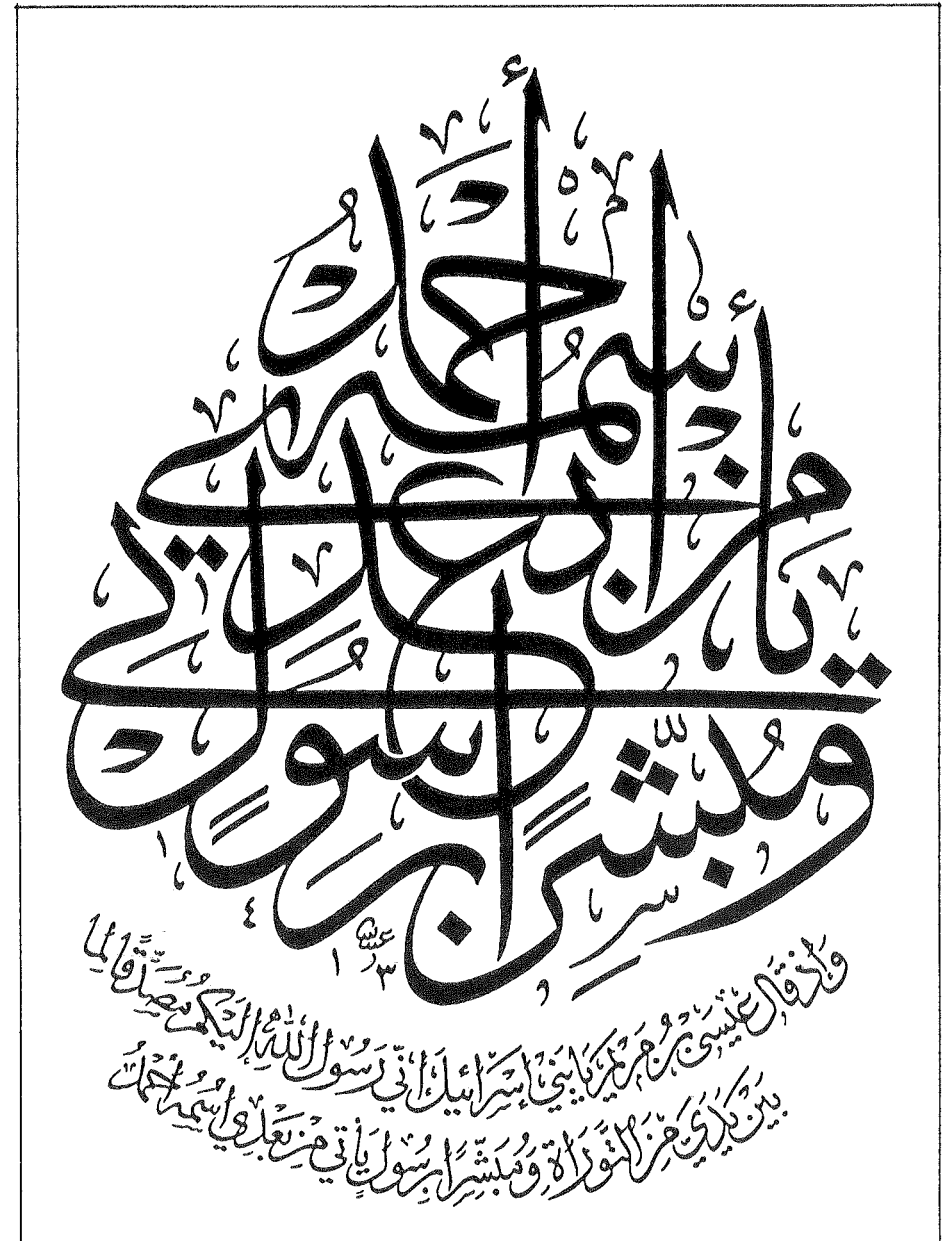 ومبشرا برسول يأتي من بعدي اسمه أحمد
وإذ قال عيسى بن مريم يا بني إسرائيل إني رسول الله إليكم مصدقا لما
بين يدي من التوراة ومبشرا برسول يأتي من بعدي اسمه أحمد